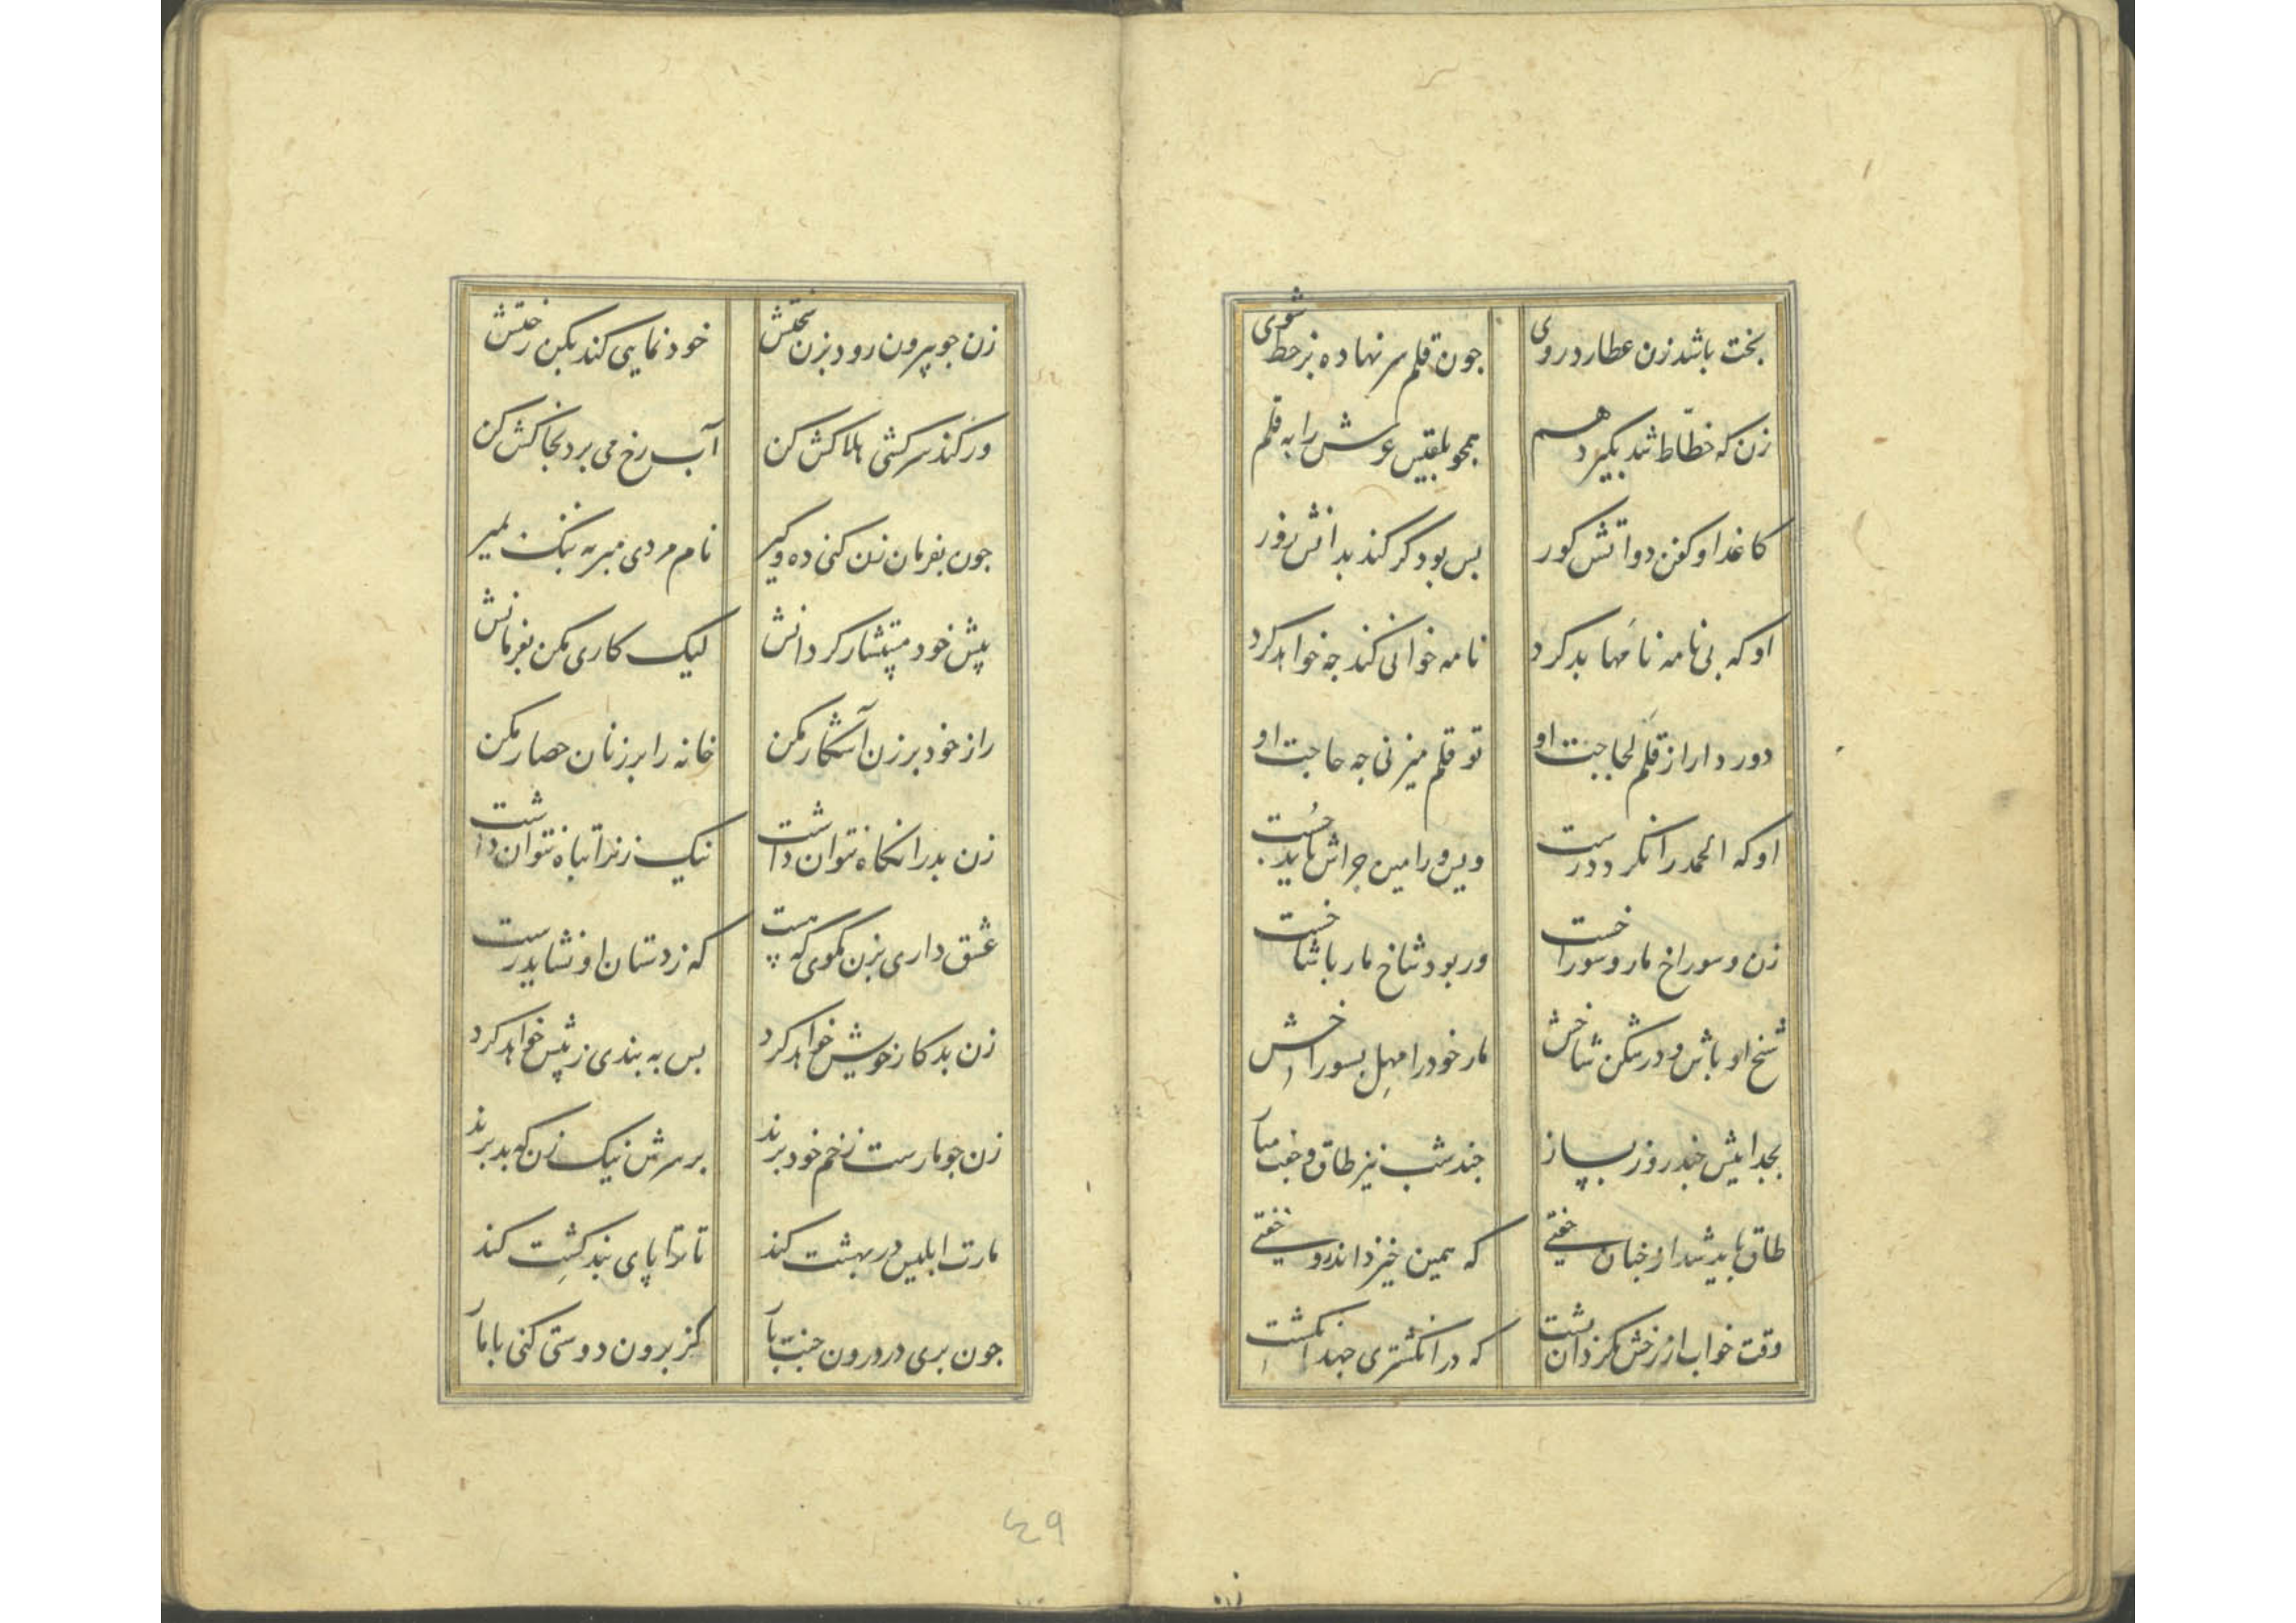 بخت باشد زن عطارد روی جون قلم سر نهاده بر خط شوی
زن که خطّاط شد بگیرد هم همجو بلقیس عرش را به قلم
کاغذ او کفن دواتش کور بس بود گر کند بدانش زور
او که بی نامه نامها بد کرد نامه خوانی کند جه خواهد کرد
دور دار از قلم لجاجت او تو قلم میزنی جه حاجت او
او که الحمد را نکرد درست ویس و رامین جراش باید جست
زن و سوراخ مار و سوراخست ور بود شاخ مار با شاخست
شخ او باش و درشکن شاخش مار خود را مهل بسوراخش
بجداییش جند روز بساز جند شب نیز طاق و جفت مباز
طاق باید شد از جنان جفتی که همین خیز داند و خفتی
وقت خواب از رخش بگردان پشت که در انگشتری جهند انگشت
زن جو بیرون رود بزن سختش خود نمایی کند بکن رختش
ور کند سرکشی هلاکش کن آب رخ می برد بخاکش کن
جون بفرمان زن کنی ده و گیر نام مردی مبر به ننک بمیر
پیش خود مستشار کردانش لیک کاری مکن بفرمانش
راز خود بر زن آشکار مکن خانه را بر زنان حصار مکن
زن بد را نکاه نتوان داشت نیک زنرا تباه نتوان داشت
عشق داری بزن مگوی که هست که زدستان او نشاید رست
زن بد کار خویش خواهد کرد بس به بندی ز پیش خواهد کرد
زن جو مارست زخم خود بزند بر سرش نیک زن که بد بزند
مارت ابلیس در بهشت کند تا ترا پای بند کشت کند
جون بری در درون جنت بار کز برون دوستی کنی با مار
۴۹